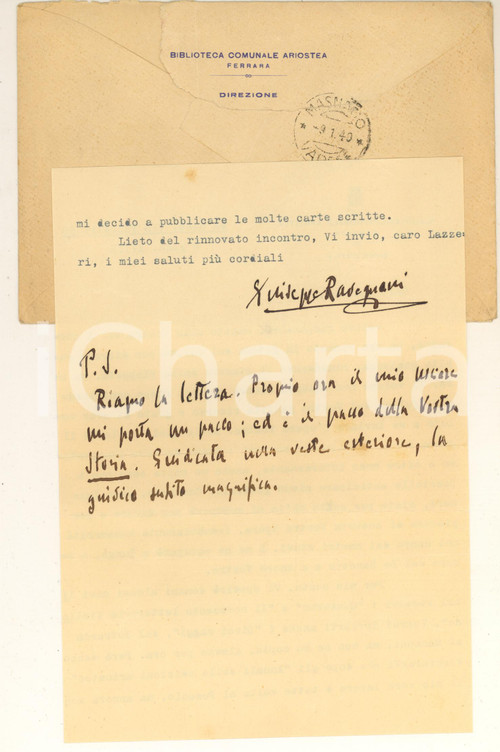 BIBLIOTECA COMUNALE ARIOSTEA
FERRARA
DIREZIONE
MASNAGO
-9.1.40
mi decido a pubblicare le molte carte scritte.
Lieto del rinnovato incontro, Vi invio, caro Lazze-
ri, i miei saluti più cordiali
Giuseppe Ravegnani
iCharta
P.S.
Riapro la lettera. Proprio ora il mio usciere
mi porta un pacco; ed è il pacco della Vostra
Storia. Giudicata nella veste esteriore, la
giudico subito magnifica.